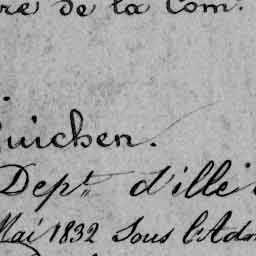 re de la Com.
uichen.
Dept d'ille
Mai 1832 Sous l'Adm